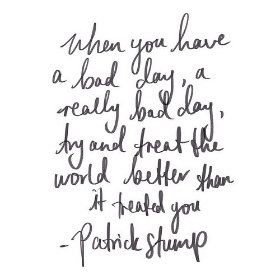 when you have
a bad day, a
really bad day,
try and treat the
world better than
it treated you
-Patrick Stump